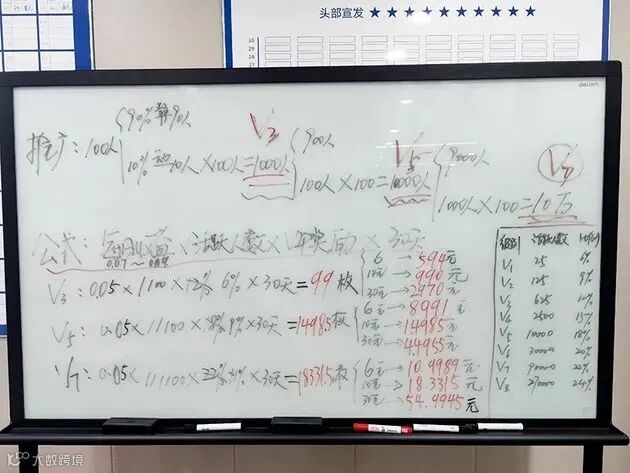 头部宣发 ★★★★★★★★★★★
30
29
28
27
deli
90% 静 90人
推广：100人
10% 动 10人×100人=1000人
V3
900人
100人×100=10000人
V5
9000人
1000人×100=10万
V7
公式： 活跃人数× 奖励×30天
0.07~
V3：0.05×1100×12% 6%×30天=99枚
6元→594元
10元→990元
30元→2970元
V5：0.05×11100× 9%×30天=1498.5枚
6元→8991元
10元→14985元
30元→44955元
V7：0.05×111100×22% 11%×30天=18331.5枚
6元→10.9989元
10元→18.3315元
30元→54.9945元
级别 活跃人数 比例
V1 25 6%
V2 125 9%
V3 625 12%
V4 2500 15%
V5 10000 18%
V6 30000 20%
V7 90000 22%
V8 270000 24%
大数跨境